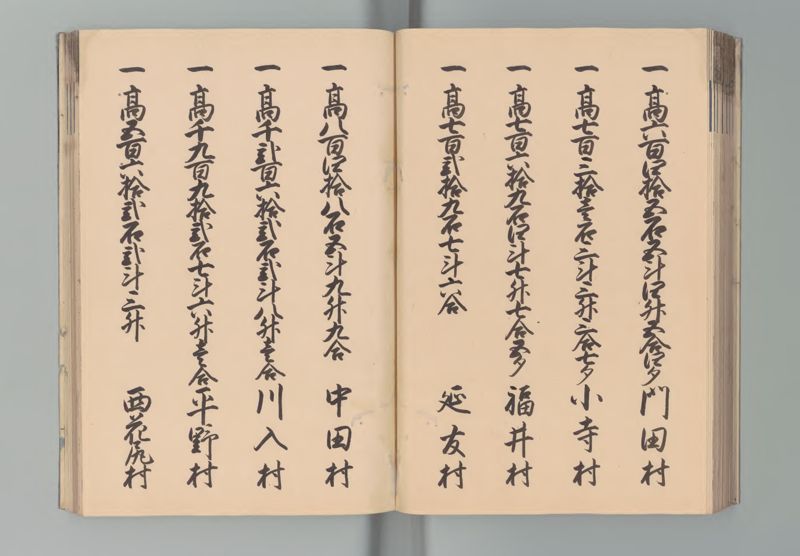 一 高六百四拾五石五斗四升五合四夕 門田村
一 高七百三拾壱石三斗三升三合七夕 小寺村
一 高七百六拾九石四斗七升七合五夕 福井村
一 高七百弐拾九石七斗六合 延友村
一 高八百四拾八石五斗九升九合 中田村
一 高千弐百六拾弐石弐斗八升壱合 川入村
一 高千九百九拾弐石七斗六升壱合 平野村
一 高五百六拾弐石弐斗三升 西花尻村